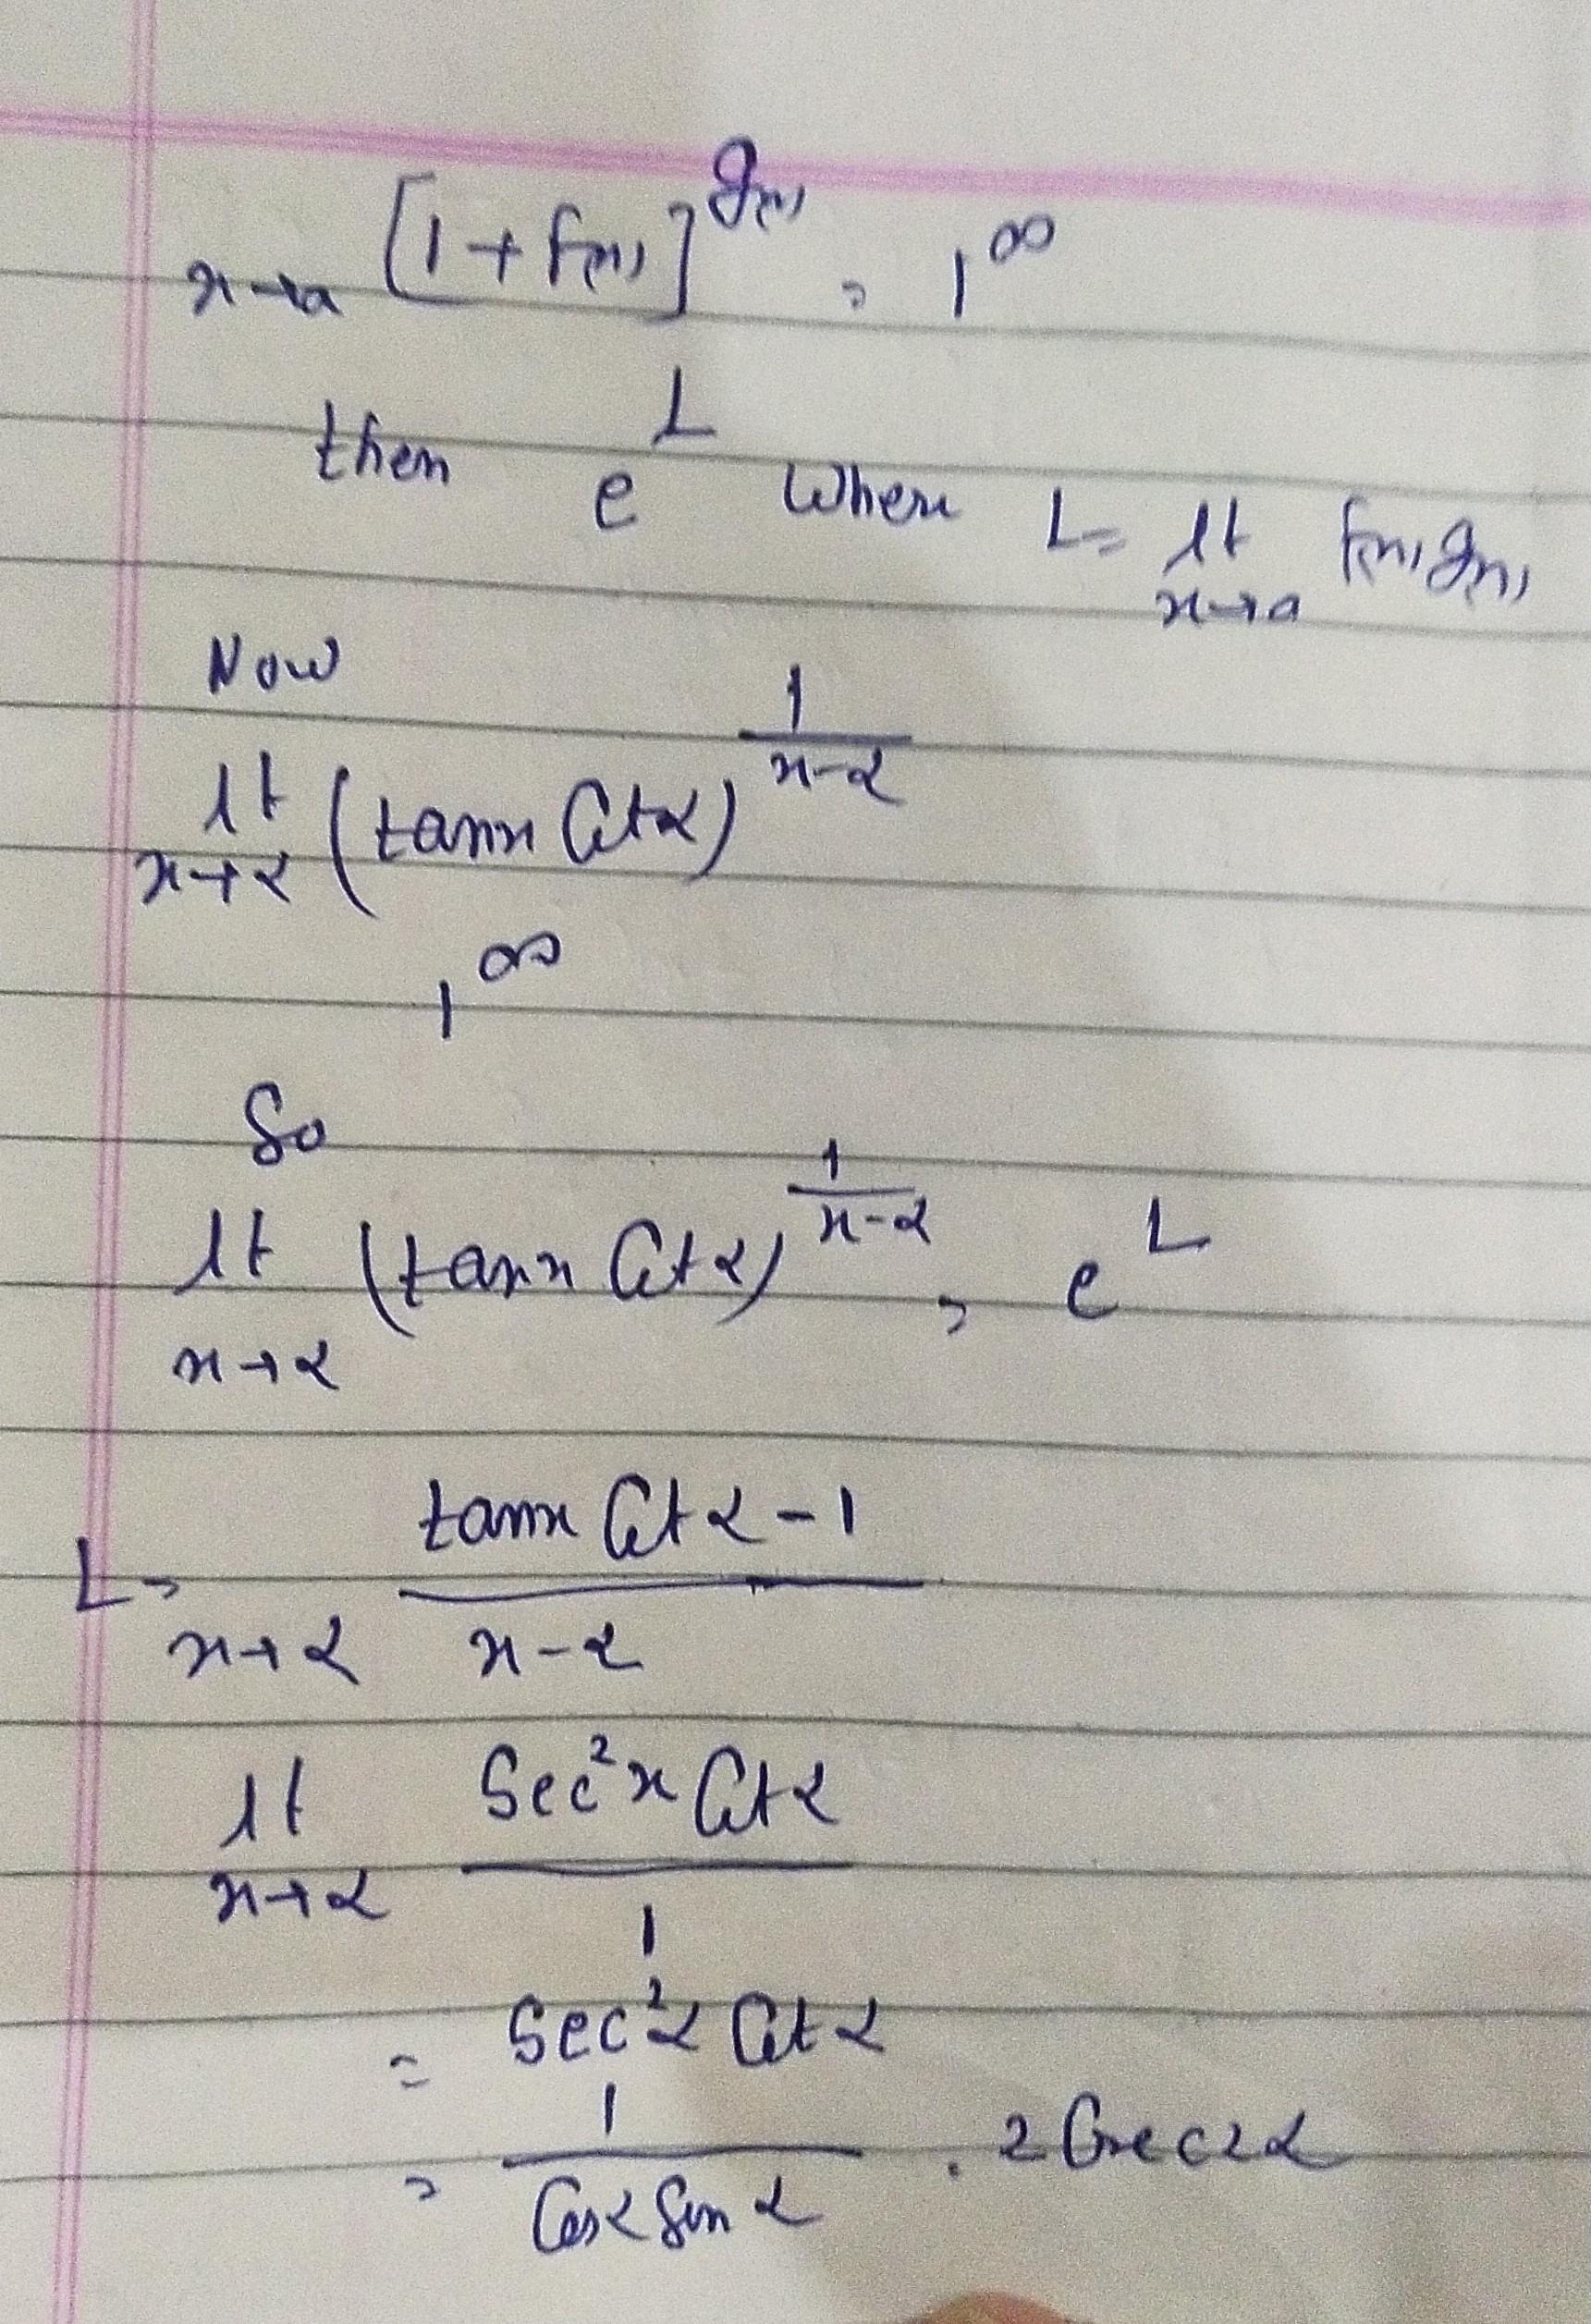 x→a [1 + f(x)]^g(x) = 1^∞
then e^L where L = lt x→a f(x) g(x)
Now
lt x→α (tanx Cotα)^(1/(x-α))
1^∞
So
lt x→α (tanx Cotα)^(1/(x-α)) = e^L
L = x→α (tanx Cotα - 1)/(x-α)
lt x→α (Sec²x Cotα)/1
= Sec²α Cotα
= 1/(Cosα Sinα) . 2 Cosec2α